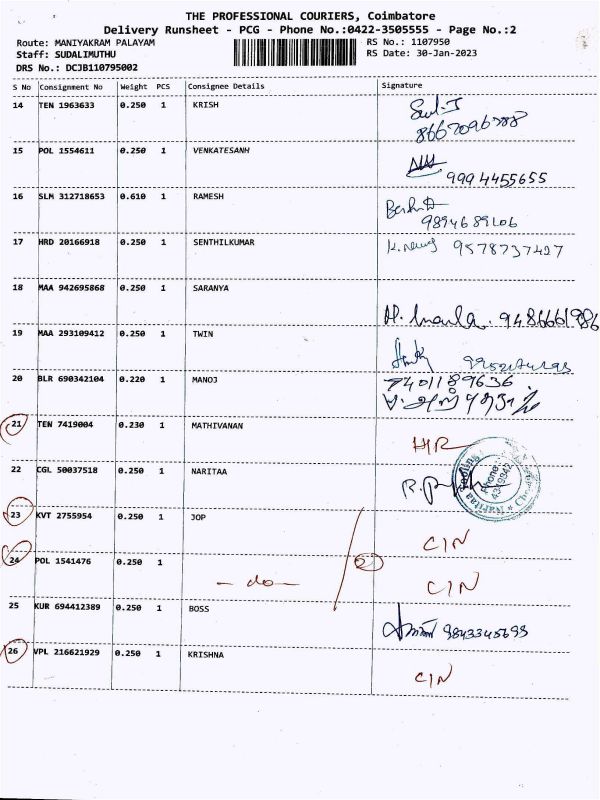 THE PROFESSIONAL COURIERS, Coimbatore
Delivery Runsheet - PCG - Phone No.:0422-3505555 - Page No.:2
Route: MANIYAKRAM PALAYAM RS No.: 1107950
Staff: SUDALIMUTHU RS Date: 30-Jan-2023
DRS No.: DCJB110795002
S No Consignment No Weight PCS Consignee Details Signature
14 TEN 1963633 0.250 1 KRISH
15 POL 1554611 0.250 1 VENKATESANH
9994455655
16 SLM 312718653 0.610 1 RAMESH
9894689106
17 HRD 20166918 0.250 1 SENTHILKUMAR 9578737427
18 MAA 942695868 0.250 1 SARANYA
9486661986
19 MAA 293109412 0.250 1 TWIN
20 BLR 690342104 0.220 1 MANOJ 7401189636
21 TEN 7419004 0.230 1 MATHIVANAN
22 CGL 50037518 0.250 1 NARITAA
23 KVT 2755954 0.250 1 JOP
CIN
24 POL 1541476 0.250 1 2
- do - CIN
25 KUR 694412389 0.250 1 BOSS
9843345693
26 VPL 216621929 0.250 1 KRISHNA
CIN